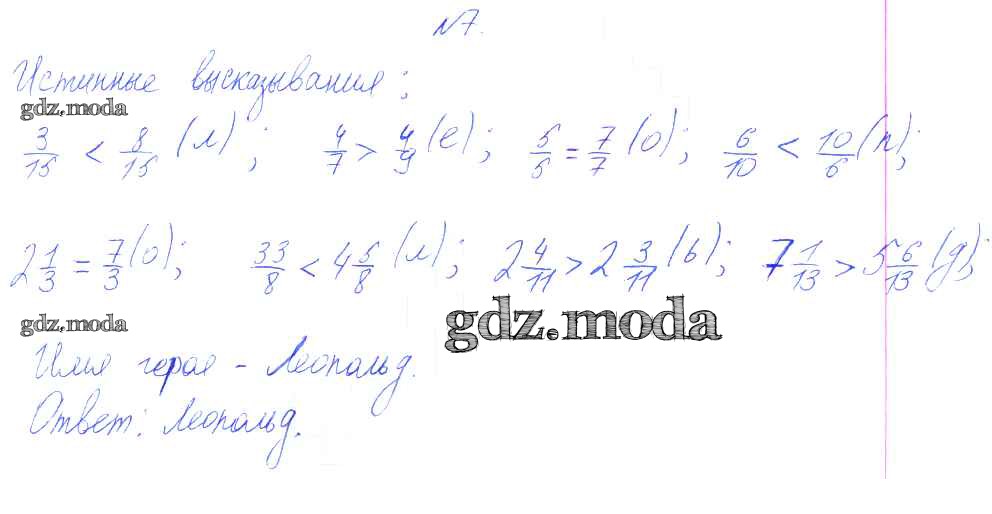 N7.
Истинные высказывания:
gdz.moda
3/15 < 8/15 (л); 4/7 > 4/9 (е); 5/5 = 7/7 (о); 6/10 < 10/6 (п);
2 1/3 = 7/3 (о); 33/8 < 4 5/8 (л); 2 4/11 > 2 3/11 (ь); 7 1/13 > 5 6/13 (д);
gdz.moda
gdz.moda
Имя героя - Леопольд.
Ответ: Леопольд.